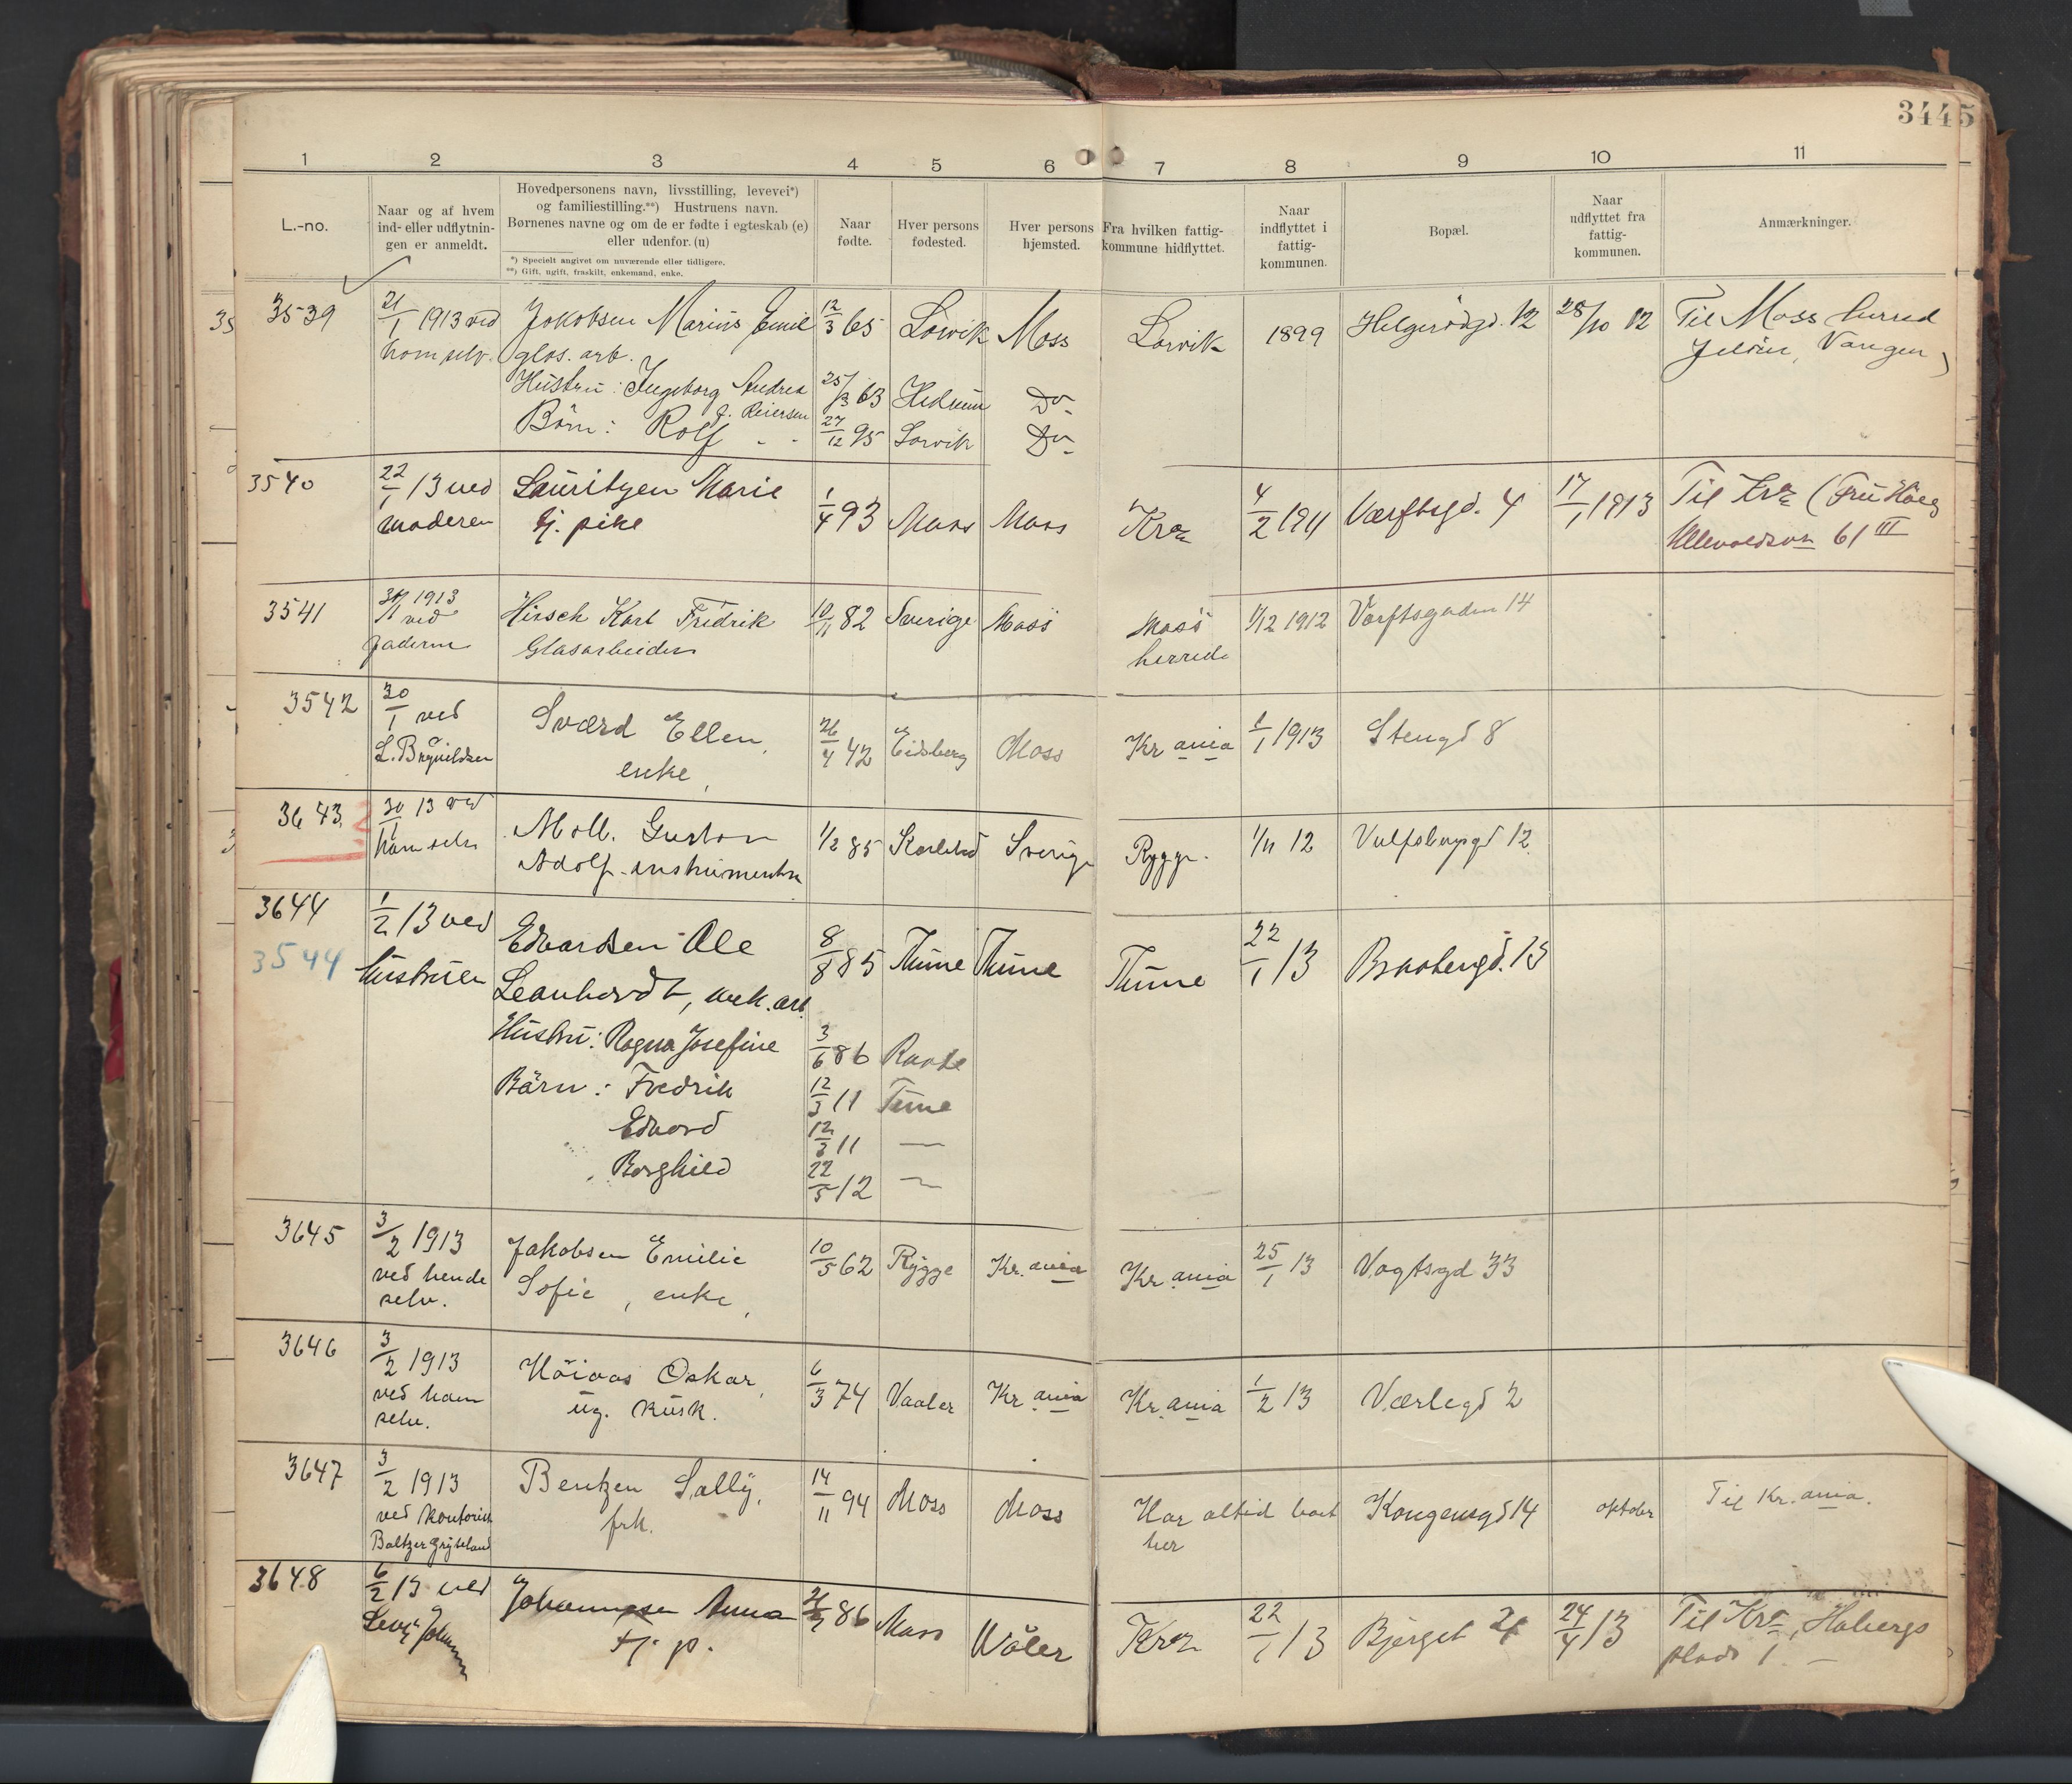 3445
1 2 3 4 5 6 7 8 9 10 11
L.-no.
Naar og af hvem
ind- eller udflytnin-
gen er anmeldt.
Hovedpersonens navn, livsstilling, levevei*)
og familiestilling.**) Hustruens navn.
Børnenes navne og om de er fødte i egteskab (e)
eller udenfor. (u)
*) Specielt angivet om nuværende eller tidligere.
**) Gift, ugift, fraskilt, enkemand, enke.
Naar
fødte.
Hver persons
fødested.
Hver persons
hjemsted.
Fra hvilken fattig-
kommune hidflyttet.
Naar
indflyttet i
fattig-
kommunen.
Bopæl.
Naar
udflyttet fra
fattig-
kommunen.
Anmærkninger.
3539 21/1 1913 ved Jakobsen Marius Emil 12/3 65 Larvik Moss Larvik 1899 Helgerødgd. 12 28/10 12 Til Moss herred
ham selv. glas. arb. Jeløen, Vangen
Hustru: Ingeborg Andrea 25/3 63 Hedrum Do
f. Reiersen
Børn: Rolf 27/12 95 Larvik Do
3540 22/1 13 ved Lauritzen Marie 1/4 93 Moss Moss Kra 4/2 1911 Værftsgd. 4 17/1 1913 Til Kra (Fru Høeg
moderen tj. pike Ullevoldsvn 61 III
3541 31/1 1913 Hirsch Karl Fredrik 10/11 82 Sverige Moss Moss 1/12 1912 Værftsgaden 14
ved
faderen Glasarbeider herred
3542 30/1 ved Sværd Ellen, 26/4 42 Eidsberg Moss Kr.ania 1/1 1913 Stengd 8
L. Brynildsen enke,
3643 30/1 13 ved Moll. Gustav 1/2 85 Karlstad Sverige Rygge. 1/11 12 Vulfsbergsgd 12
ham selv Adolf. instrumentm
3644 1/2 13 ved Edvardsen Ole 8/8 85 Thune Thune Thune 22/1 13 Braatengd. 13
3544 hustruen Leonhardt, mek. arb.
Hustru: Ragna Josefine 3/6 86 Raade
Børn: Fredrik 12/3 11 Tune
Edvard 12/3 11 —
Borghild 22/5 12 —
3645 3/2 1913 Jakobsen Emilie 10/5 62 Rygge Kr.ania Kr.ania 25/1 13 Vogtsgd 33
ved hende Sofie, enke,
selv.
3646 3/2 1913 Höiaas Oskar, 6/3 74 Vaaler Kr.ania Kr.ania 1/2 13 Værlegd 2
ved ham ug. kusk.
selv.
3647 3/2 1913 Bentzen Sally, 14/11 94 Moss Moss Har altid boet Kongensgd 14 oktober Til Kr.ania.
ved kontorist frk. her
Baltzer Gryteland
3648 6/2 13 ved Johannesen Anna 86 Moss Våler Kra 22/1 13 Bjerget 24 24/4 13 Til Kra, Habergs
tj. p. plads 1. —